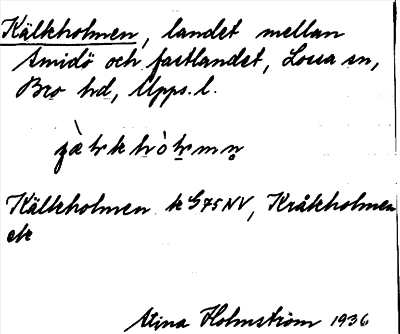 Kälkholmen, landet mellan
Amidö och fastlandet, Lossa sn,
Bro hd, Upps. l.
Kälkholmen k G75NV, Kråkholmen
ek
Stina Holmström 1936